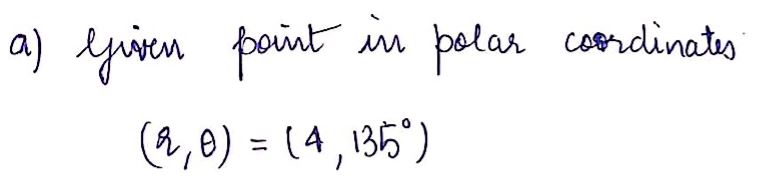 a) Given point in polar coordinates
(r, θ) = (4, 135°)